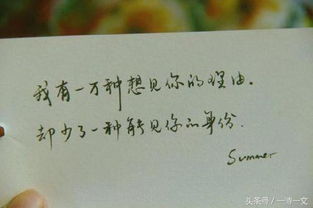 我有一万种想见你的理由。
却少了一种能见你的身份.
Summer
头条号／一书一文